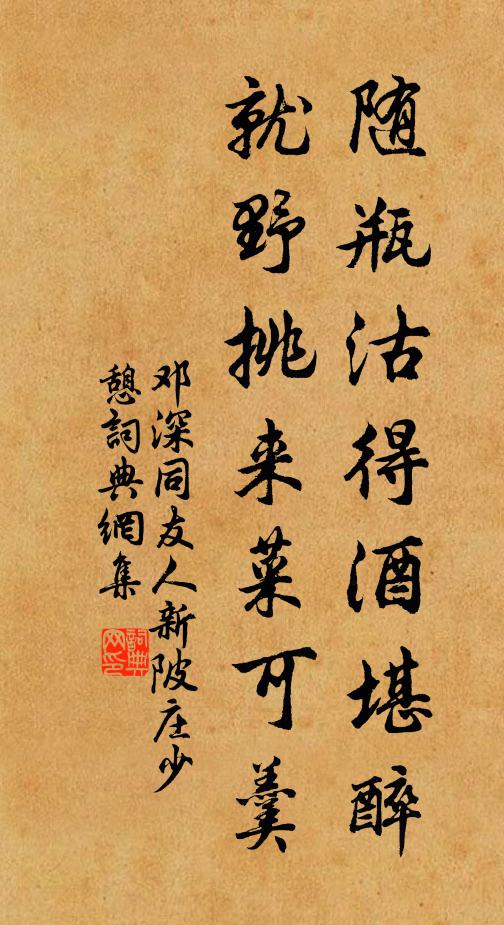 随瓶沽得酒堪醉
就野挑来菜可羹
邓深同友人新陂庄少
憩詞典網集
詞典
网印